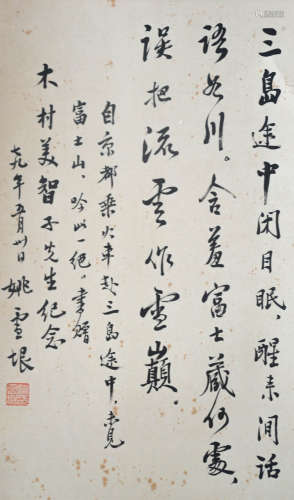 三島途中闭目眠，醒来闲话
语如川。含羞富士藏何處，
误把流雲作雪巔。
自京都乘火车赴三島途中，觅
富士山，吟此一绝，书赠
木村美智子先生纪念
七九年五月卅日 姚雪垠